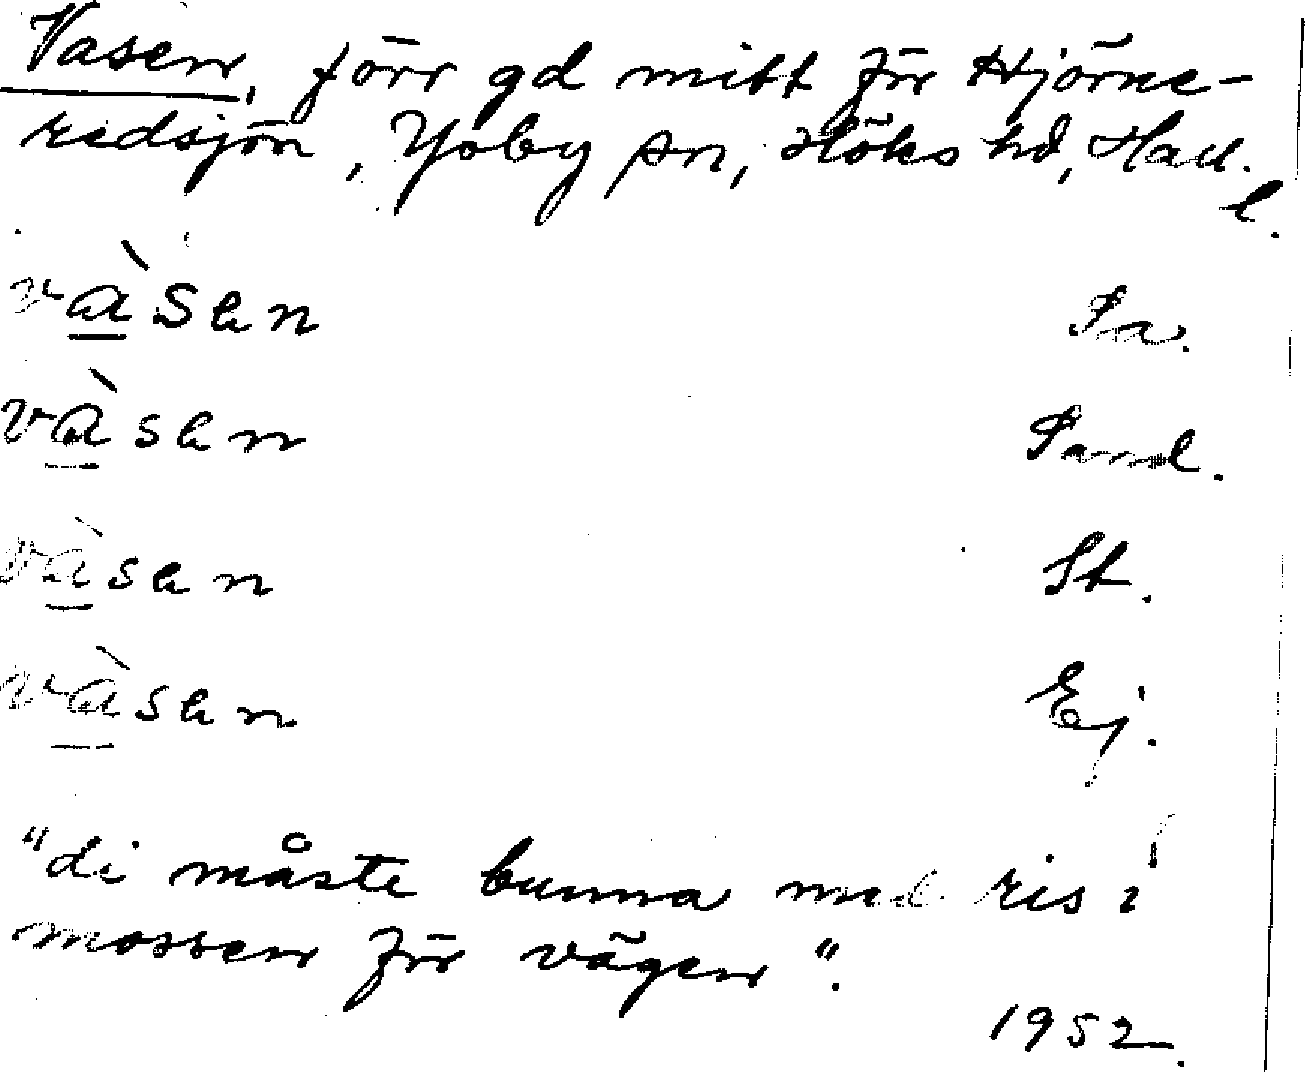 Vasen, förr gd mitt för Hjörne-
redsjön, Ysby sn, Höks hd, Hall.
l.
vàsen Pa.
vàsen Pand.
vàsen St.
vàsen Ej.
"di måste bunna med ris i
mossen för vägen".
1952.